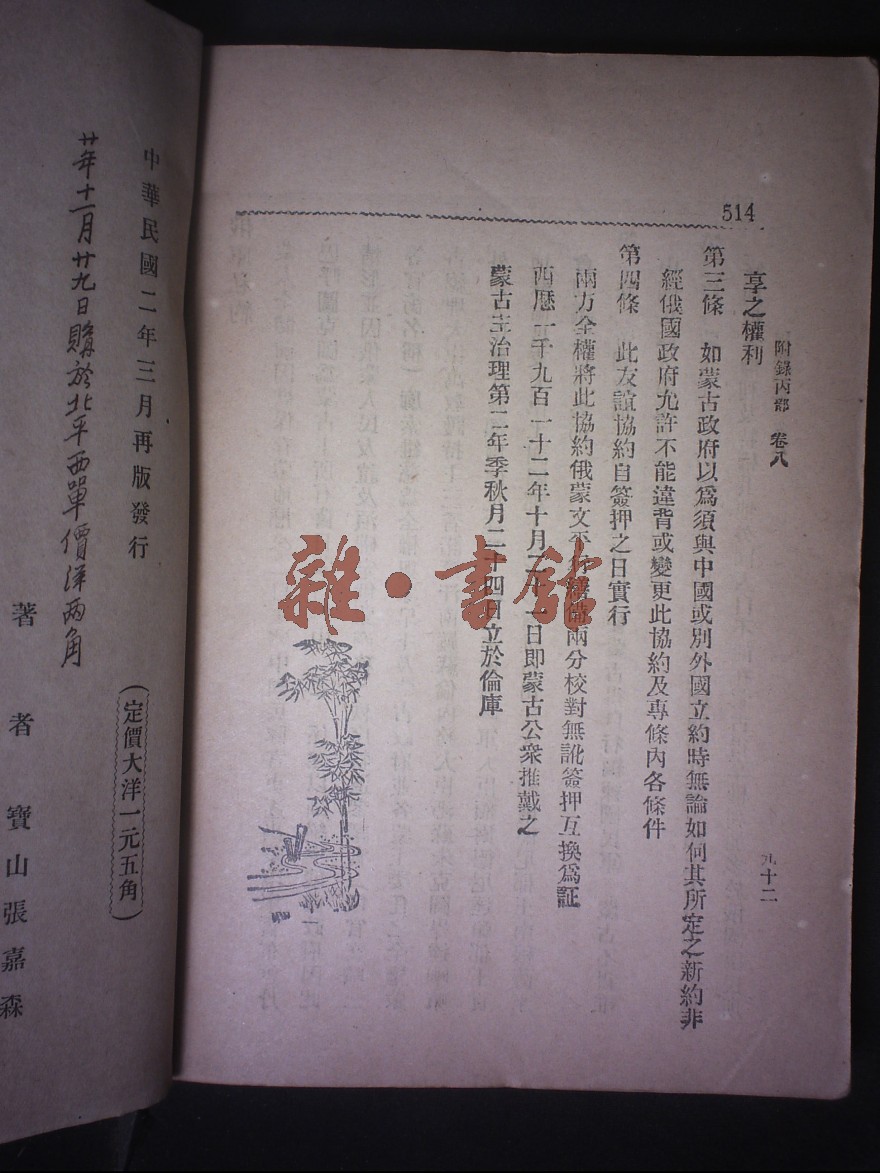 514
附錄丙部　卷八
九十二
享之權利
第三條　如蒙古政府以爲須與中國或別外國立約時無論如何其所定之新約非
經俄國政府允許不能違背或變更此協約及專條內各條件
第四條　此友誼協約自簽押之日實行
兩方全權將此協約俄蒙文平行繕備兩分校對無訛簽押互換爲証
西歷一千九百一十二年十月二十一日即蒙古公衆推戴之
蒙古主治理第二年季秋月二十四日立於倫庫
雜·書館
中華民國二年三月再版發行
廿年十一月廿九日購於北平西單價洋兩角
（定價大洋一元五角）
著者　寶山張嘉森